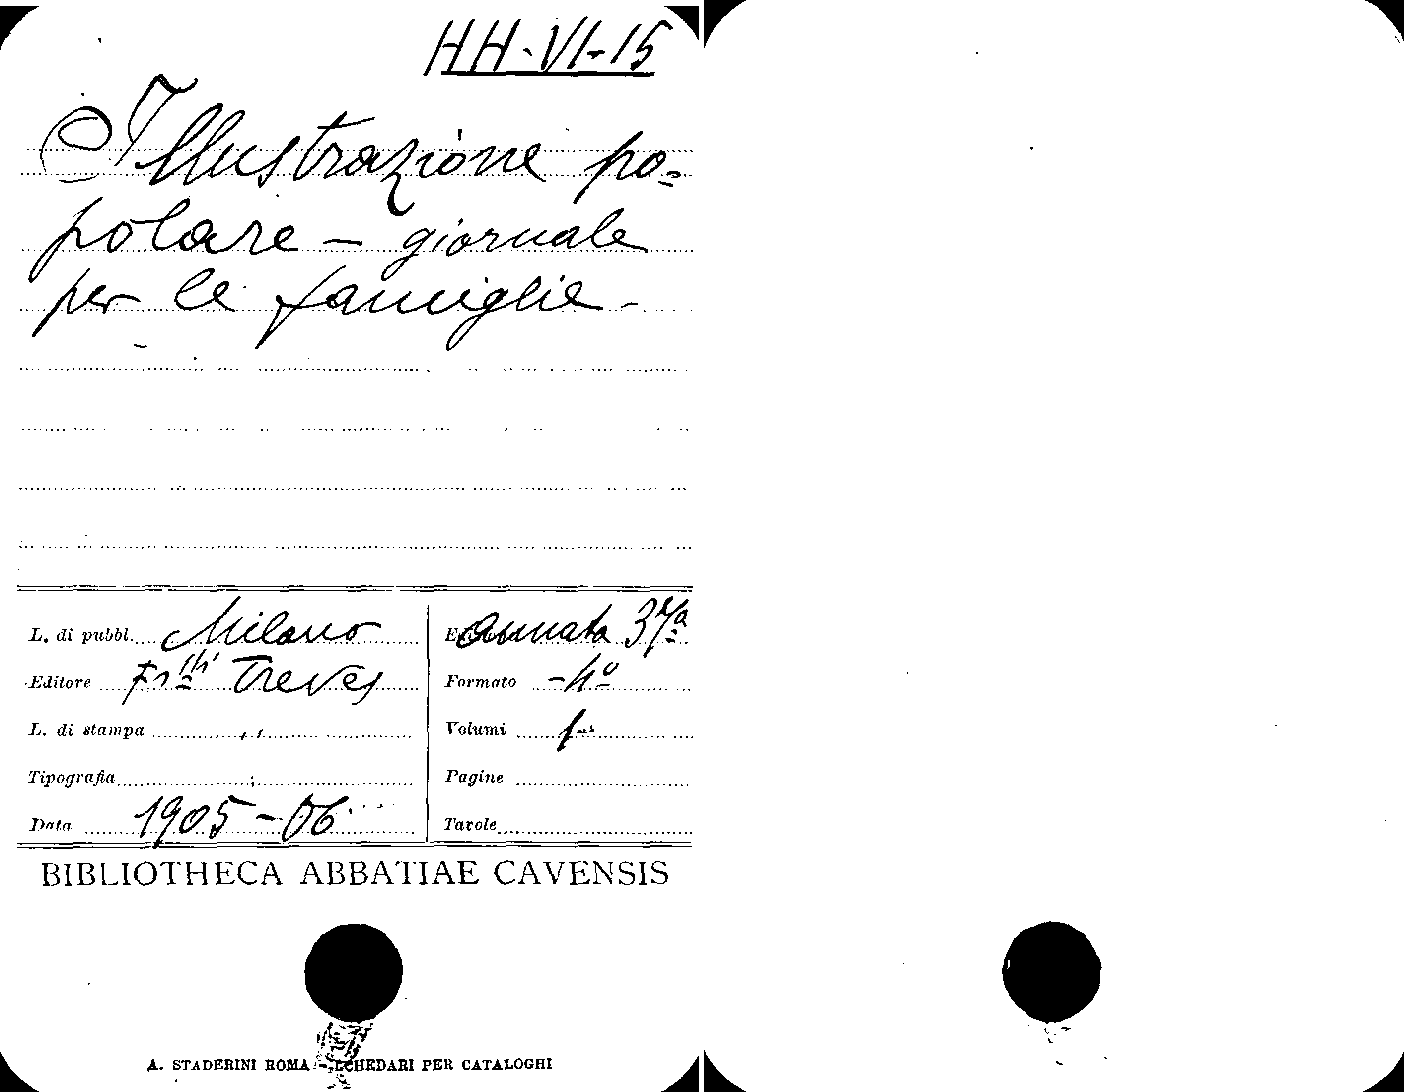 HH-VI-15
Illustrazione po=
polare - giornale
per le famiglie -
L. di pubbl. Milano
annata 37ª
Editore F.lli Treves
Formato - 4º
L. di stampa ,,
Volumi 1-
Tipografia
Pagine
Data 1905-06
Tavole
BIBLIOTHECA ABBATIAE CAVENSIS
A. STADERINI ROMA - SCHEDARI PER CATALOGHI